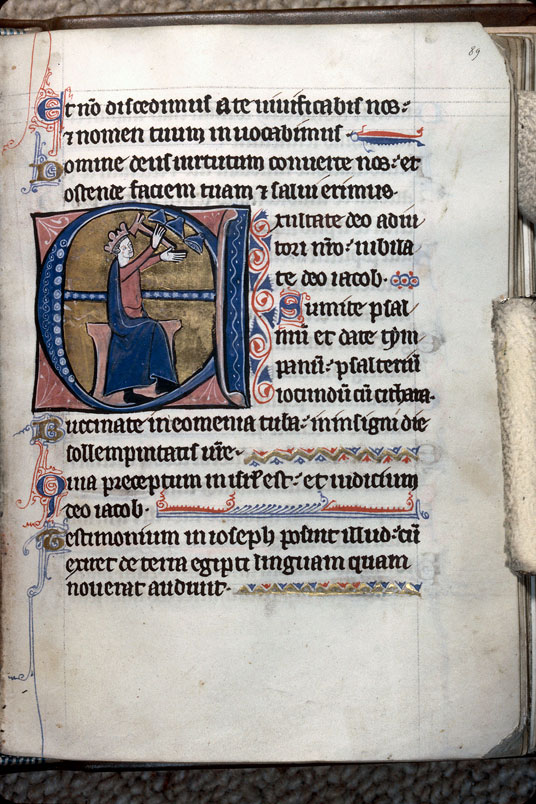 89
Et nõ discedimus a te uiuificabis nos:
⁊ nomen tuum inuocabimus
Domine deus uirtutum conuerte nos: et
ostende faciem tuam ⁊ salui erimus.
Exultate deo adiu
tori nr̃o: iubila
te deo iacob.
Sumite psal
mũ et date tỹm
panũ: psalteriũ
iocundũ cũ cithara.
Buccinate in neomenia tuba: in insigni die
sollempnitatis ur̃e.
Quia preceptum in isr̃l est: et iudicium
deo iacob.
Testimonium in ioseph posuit illud: cũ
exiret de terra egipti linguam quam
nouerat audiuit.